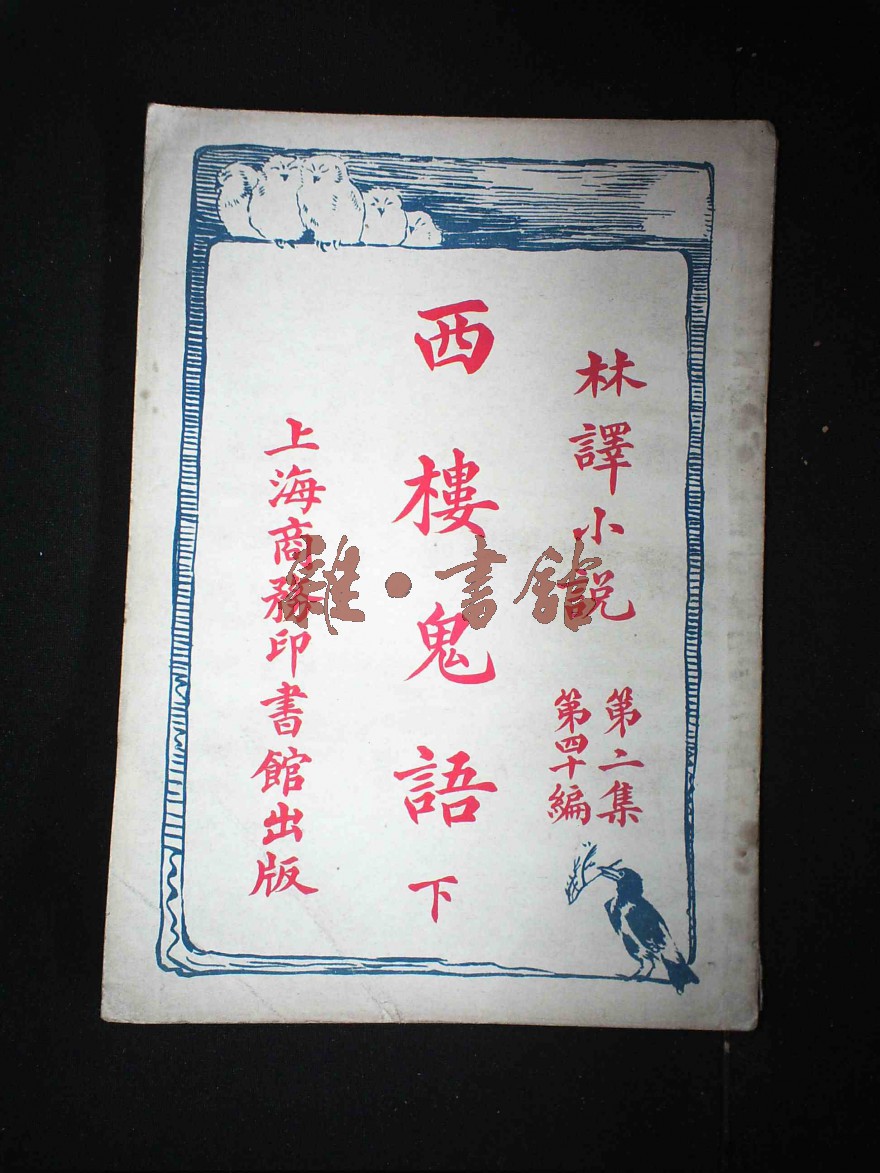 林譯小説
第二集
第四十編
西樓鬼語下
上海商務印書館出版
雜·書館